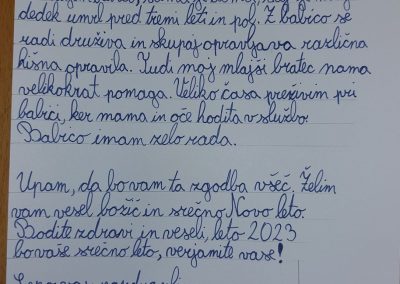 dedek umrl pred tremi leti in pol. Z babico se
radi druživa in skupaj opravljava različna
hišna opravila. Tudi moj mlajši bratec nama
velikokrat pomaga. Veliko časa preživim pri
babici, ker mama in oče hodita v službo.
Babico imam zelo rada.
Upam, da bo vam ta zgodba všeč. Želim
vam vesel božič in srečno Novo leto.
Bodite zdravi in veseli, leto 2023
bo vaše srečno leto, verjamite vase!